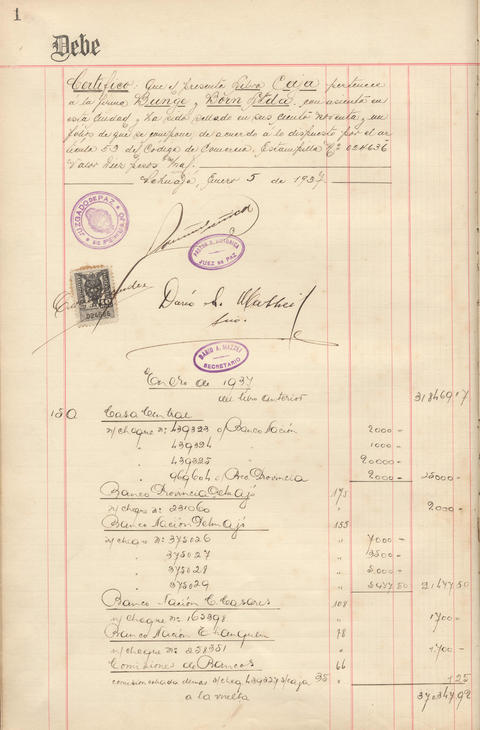 1
Debe
Certifico: Que el presente Libro Caja pertenece
a la firma Bunge y Born Ltda. con asiento en
esta ciudad y ha sido sellado en sus ciento noventa y un
folios de que se compone, de acuerdo a lo dispuesto por el ar
tículo 53 del Código de Comercio. Estampilla Nº 024636
Valor Diez pesos m/nal.
Pehuajó, Enero 5 de 1937
JUZGADO DE PAZ
JUEZ DE PAZ
Darío A. Mazzei
Srio.
DARIO A. MAZZEI
SECRETARIO
Enero de 1937
del libro anterior 318469 17
Casa Central
n/cheque Nº 439323 c/ Banco Nación 2000 -
" 439324 1000 -
" 439325 " 20000 -
" 969604 c/ Bco Provincia 2000 - 25000 -
Banco Provincia Pehuajó 173
n/cheque Nº 231060 " 2000 -
Banco Nación Pehuajó 155
n/cheque Nº 375026 " 7000 -
" 375027 " 3500 -
" 375028 " 5000 -
" 375029 " 21477.50
Banco Nación C. Casares 108
n/cheque Nº 162398 " 1700 -
Banco Nación Trenquen 78
n/cheque Nº 238351 " 1700 -
Comisiones de Bancos 66
35 " 1 25
a la vuelta 370347.92